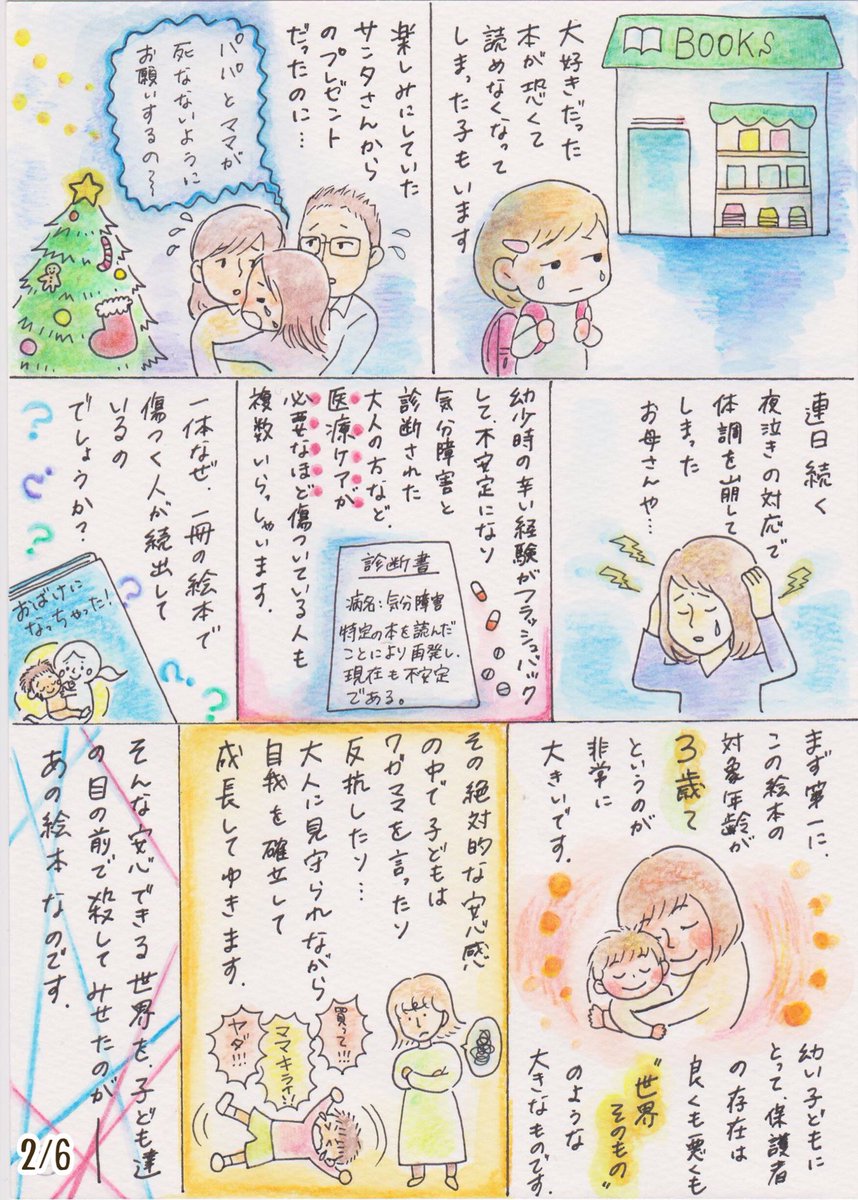 BOOKS
大好きだった
本が恐くて
読めなくなって
しまった子もいます
楽しみにしていた
サンタさんから
のプレゼント
だったのに…
パパとママが
死なないように
お願いするの〜
連日続く
夜泣きの対応で
体調を崩して
しまった
お母さんや…
幼少時の辛い経験がフラッシュバック
して、不安定になり
気分障害と
診断された
大人の方など、
医療ケアが
必要なほど傷ついている人も
複数いらっしゃいます。
診断書
病名:気分障害
特定の本を読んだ
ことにより再発し、
現在も不安定
である。
一体なぜ、一冊の絵本で
傷つく人が続出して
いるの
でしょうか?
おばけに
なっちゃった!
まず第一に、
この絵本の
対象年齢が
3歳〜
というのが
非常に
大きいです。
幼い子どもに
とって、保護者
の存在は
良くも悪くも
"世界
そのもの"
のような
大きなものです。
その絶対的な安心感
の中で子どもは
ワガママを言ったり
反抗したり…
大人に見守られながら
自我を確立して
成長してゆきます。
買って!!!
ママキライ!!
ヤダ!!!
そんな安心できる世界を、子ども達
の目の前で殺してみせたのが―
あの絵本なのです。
2/6